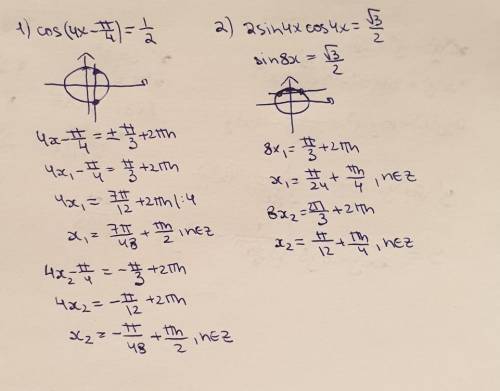 1) cos(4x-π/4)=1/2
4x-π/4=±π/3+2πn
4x₁-π/4=π/3+2πn
4x₁=7π/12+2πn|:4
x₁=7π/48+πn/2,n∈Z
4x₂-π/4=-π/3+2πn
4x₂=-π/12+2πn
x₂=-π/48+πn/2,n∈Z
2) 2sin4xcos4x=√3/2
sin8x=√3/2
8x₁=π/3+2πn
x₁=π/24+πn/4,n∈Z
8x₂=2π/3+2πn
x₂=π/12+πn/4,n∈Z